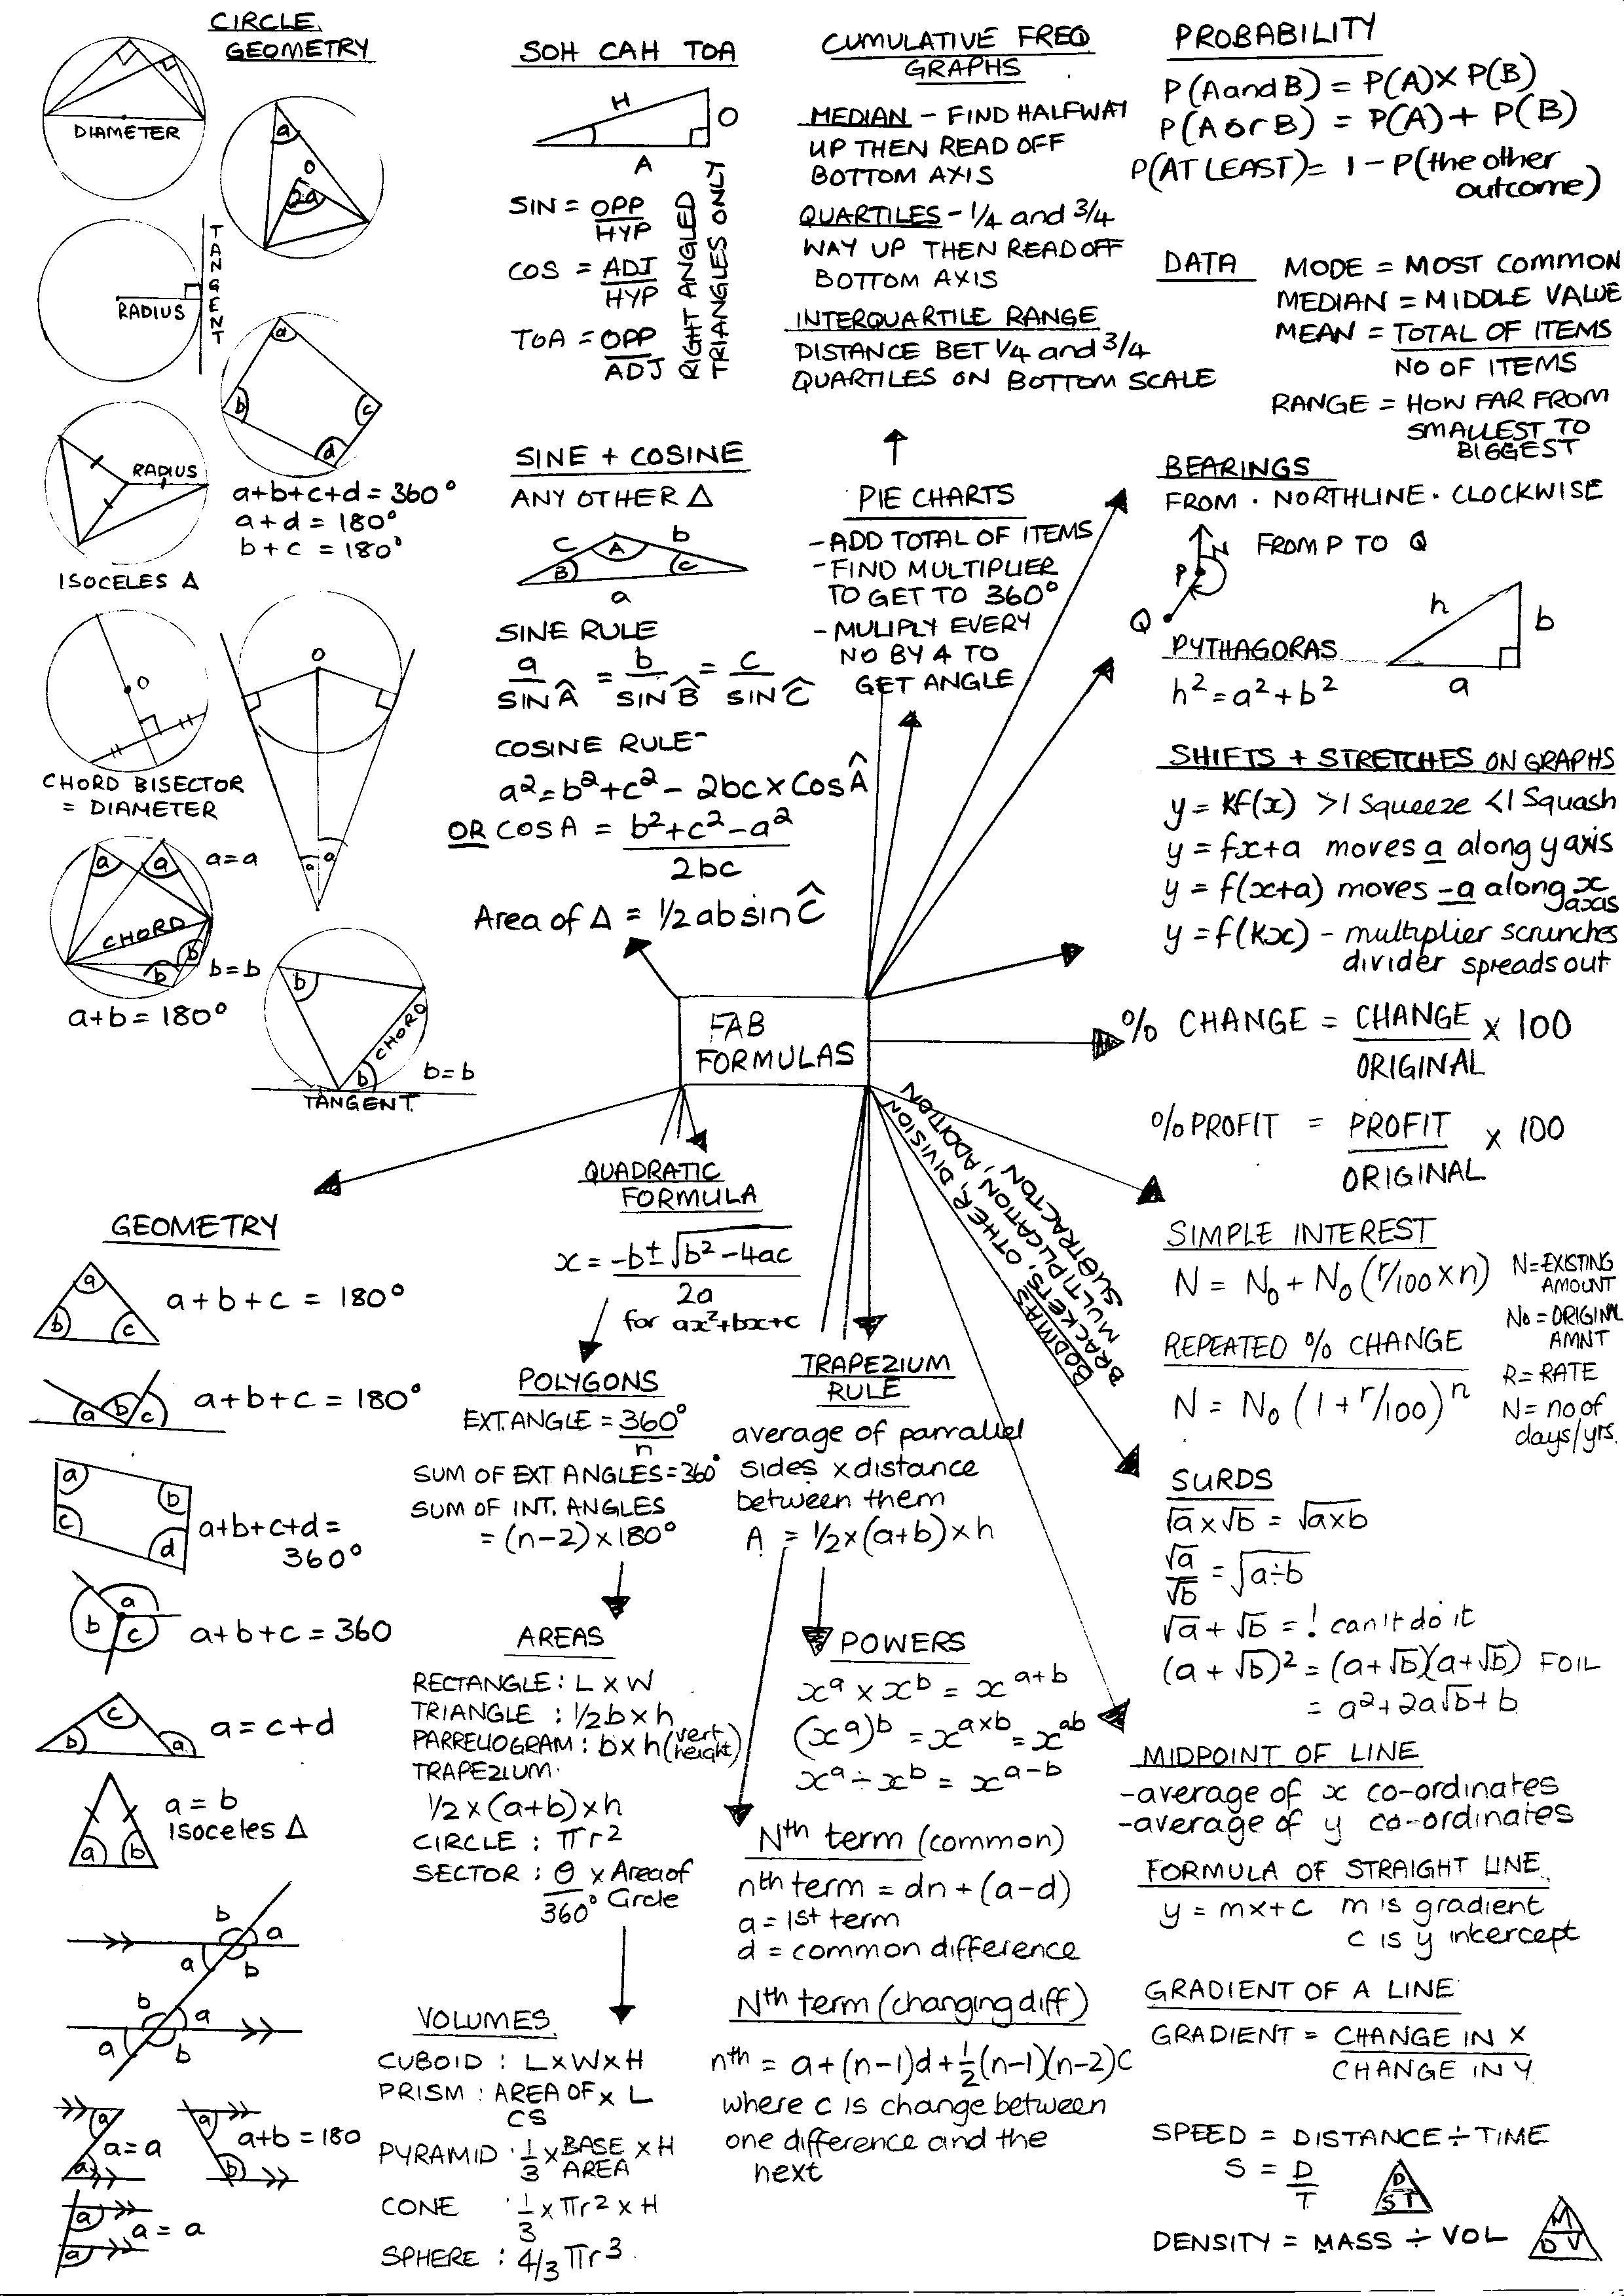 CIRCLE
GEOMETRY
DIAMETER
a
O
2a
RADIUS
TANGENT
a
b
c
d
a+b+c+d = 360°
a+d = 180°
b+c = 180°
RADIUS
ISOCELES Δ
O
CHORD BISECTOR
= DIAMETER
O
a a
a a
a=a
CHORD
b b
b=b
a+b = 180°
b
CHORD
b
b=b
TANGENT
SOH CAH TOA
H
O
A
SIN = OPP
HYP
COS = ADJ
HYP
TOA = OPP
ADJ
RIGHT ANGLED
TRIANGLES ONLY
SINE + COSINE
ANY OTHER Δ
c A b
B c
a
SINE RULE
a = b = c
SIN Â SIN B̂ SIN Ĉ
COSINE RULE-
a² = b²+c² - 2bc x Cos Â
OR COS A = b²+c²-a²
2bc
Area of Δ = 1/2 ab sin Ĉ
CUMULATIVE FREQ
GRAPHS
MEDIAN - FIND HALFWAY
UP THEN READ OFF
BOTTOM AXIS
QUARTILES - 1/4 and 3/4
WAY UP THEN READ OFF
BOTTOM AXIS
INTERQUARTILE RANGE
DISTANCE BET 1/4 and 3/4
QUARTILES ON BOTTOM SCALE
PIE CHARTS
- ADD TOTAL OF ITEMS
- FIND MULTIPLIER
TO GET TO 360°
- MULIPLY EVERY
NO BY 4 TO
GET ANGLE
PROBABILITY
P(A and B) = P(A) x P(B)
P(A or B) = P(A) + P(B)
P(AT LEAST) = 1 - P(the other
outcome)
DATA MODE = MOST COMMON
MEDIAN = MIDDLE VALUE
MEAN = TOTAL OF ITEMS
NO OF ITEMS
RANGE = HOW FAR FROM
SMALLEST TO
BIGGEST
BEARINGS
FROM · NORTHLINE · CLOCKWISE
N
P
Q
FROM P TO Q
PYTHAGORAS
h² = a² + b²
h
b
a
SHIFTS + STRETCHES ON GRAPHS
y = Kf(x) >1 Squeeze <1 Squash
y = fx+a moves a along y axis
y = f(x+a) moves -a along x
axis
y = f(Kx) - multiplier scrunches
divider spreads out
FAB
FORMULAS
% CHANGE = CHANGE x 100
ORIGINAL
% PROFIT = PROFIT x 100
ORIGINAL
SIMPLE INTEREST
N = N₀ + N₀ (r/100 x n)
N = EXISTING
AMOUNT
N₀ = ORIGINL
AMNT
R = RATE
N = no of
days/yrs.
REPEATED % CHANGE
N = N₀ (1 + r/100)ⁿ
BODMAS
BRACKETS, OTHER, DIVISION
MULTIPLICATION, ADDITION
SUBTRACTON
SURDS
√a x √b = √axb
√a = √a÷b
√b
√a + √b = ! can't do it
(a + √b)² = (a+√b)(a+√b) FOIL
= a²+2a√b+b
MIDPOINT OF LINE
-average of x co-ordinates
-average of y co-ordinates
FORMULA OF STRAIGHT LINE
y = mx+c m is gradient
c is y intercept
GRADIENT OF A LINE
GRADIENT = CHANGE IN X
CHANGE IN Y
SPEED = DISTANCE ÷ TIME
S = D
T
D
S T
DENSITY = MASS ÷ VOL
M
D V
GEOMETRY
a
b c
a+b+c = 180°
a b c
a+b+c = 180°
a
b
c
d
a+b+c+d =
360°
a
b
c
a+b+c = 360
c
b a
a = c+d
a b
a = b
Isoceles Δ
b a
a b
b a
a b
a
a
a=a
a
b
a+b = 180
a
a
a = a
QUADRATIC
FORMULA
x = -b ± √b² - 4ac
2a
for ax²+bx+c
POLYGONS
EXT.ANGLE = 360°
n
SUM OF EXT ANGLES = 360°
SUM OF INT. ANGLES
= (n-2) x 180°
AREAS
RECTANGLE : L x W
TRIANGLE : 1/2 b x h
PARRELLOGRAM : b x h (vert
height)
TRAPEZIUM
1/2 x (a+b) x h
CIRCLE : πr²
SECTOR : θ x Area of
360° Circle
VOLUMES
CUBOID : L x W x H
PRISM : AREA OF x L
CS
PYRAMID · 1/3 x BASE x H
AREA
CONE · 1/3 x πr² x H
SPHERE : 4/3 πr³
TRAPEZIUM
RULE
average of parrallel
sides x distance
between them
A = 1/2 x (a+b) x h
POWERS
xᵃ x xᵇ = xᵃ⁺ᵇ
(xᵃ)ᵇ = xᵃˣᵇ = xᵃᵇ
xᵃ ÷ xᵇ = xᵃ⁻ᵇ
Nth term (common)
nth term = dn + (a-d)
a = 1st term
d = common difference
Nth term (changing diff)
nth = a + (n-1)d + 1/2 (n-1)(n-2)c
where c is change between
one difference and the
next